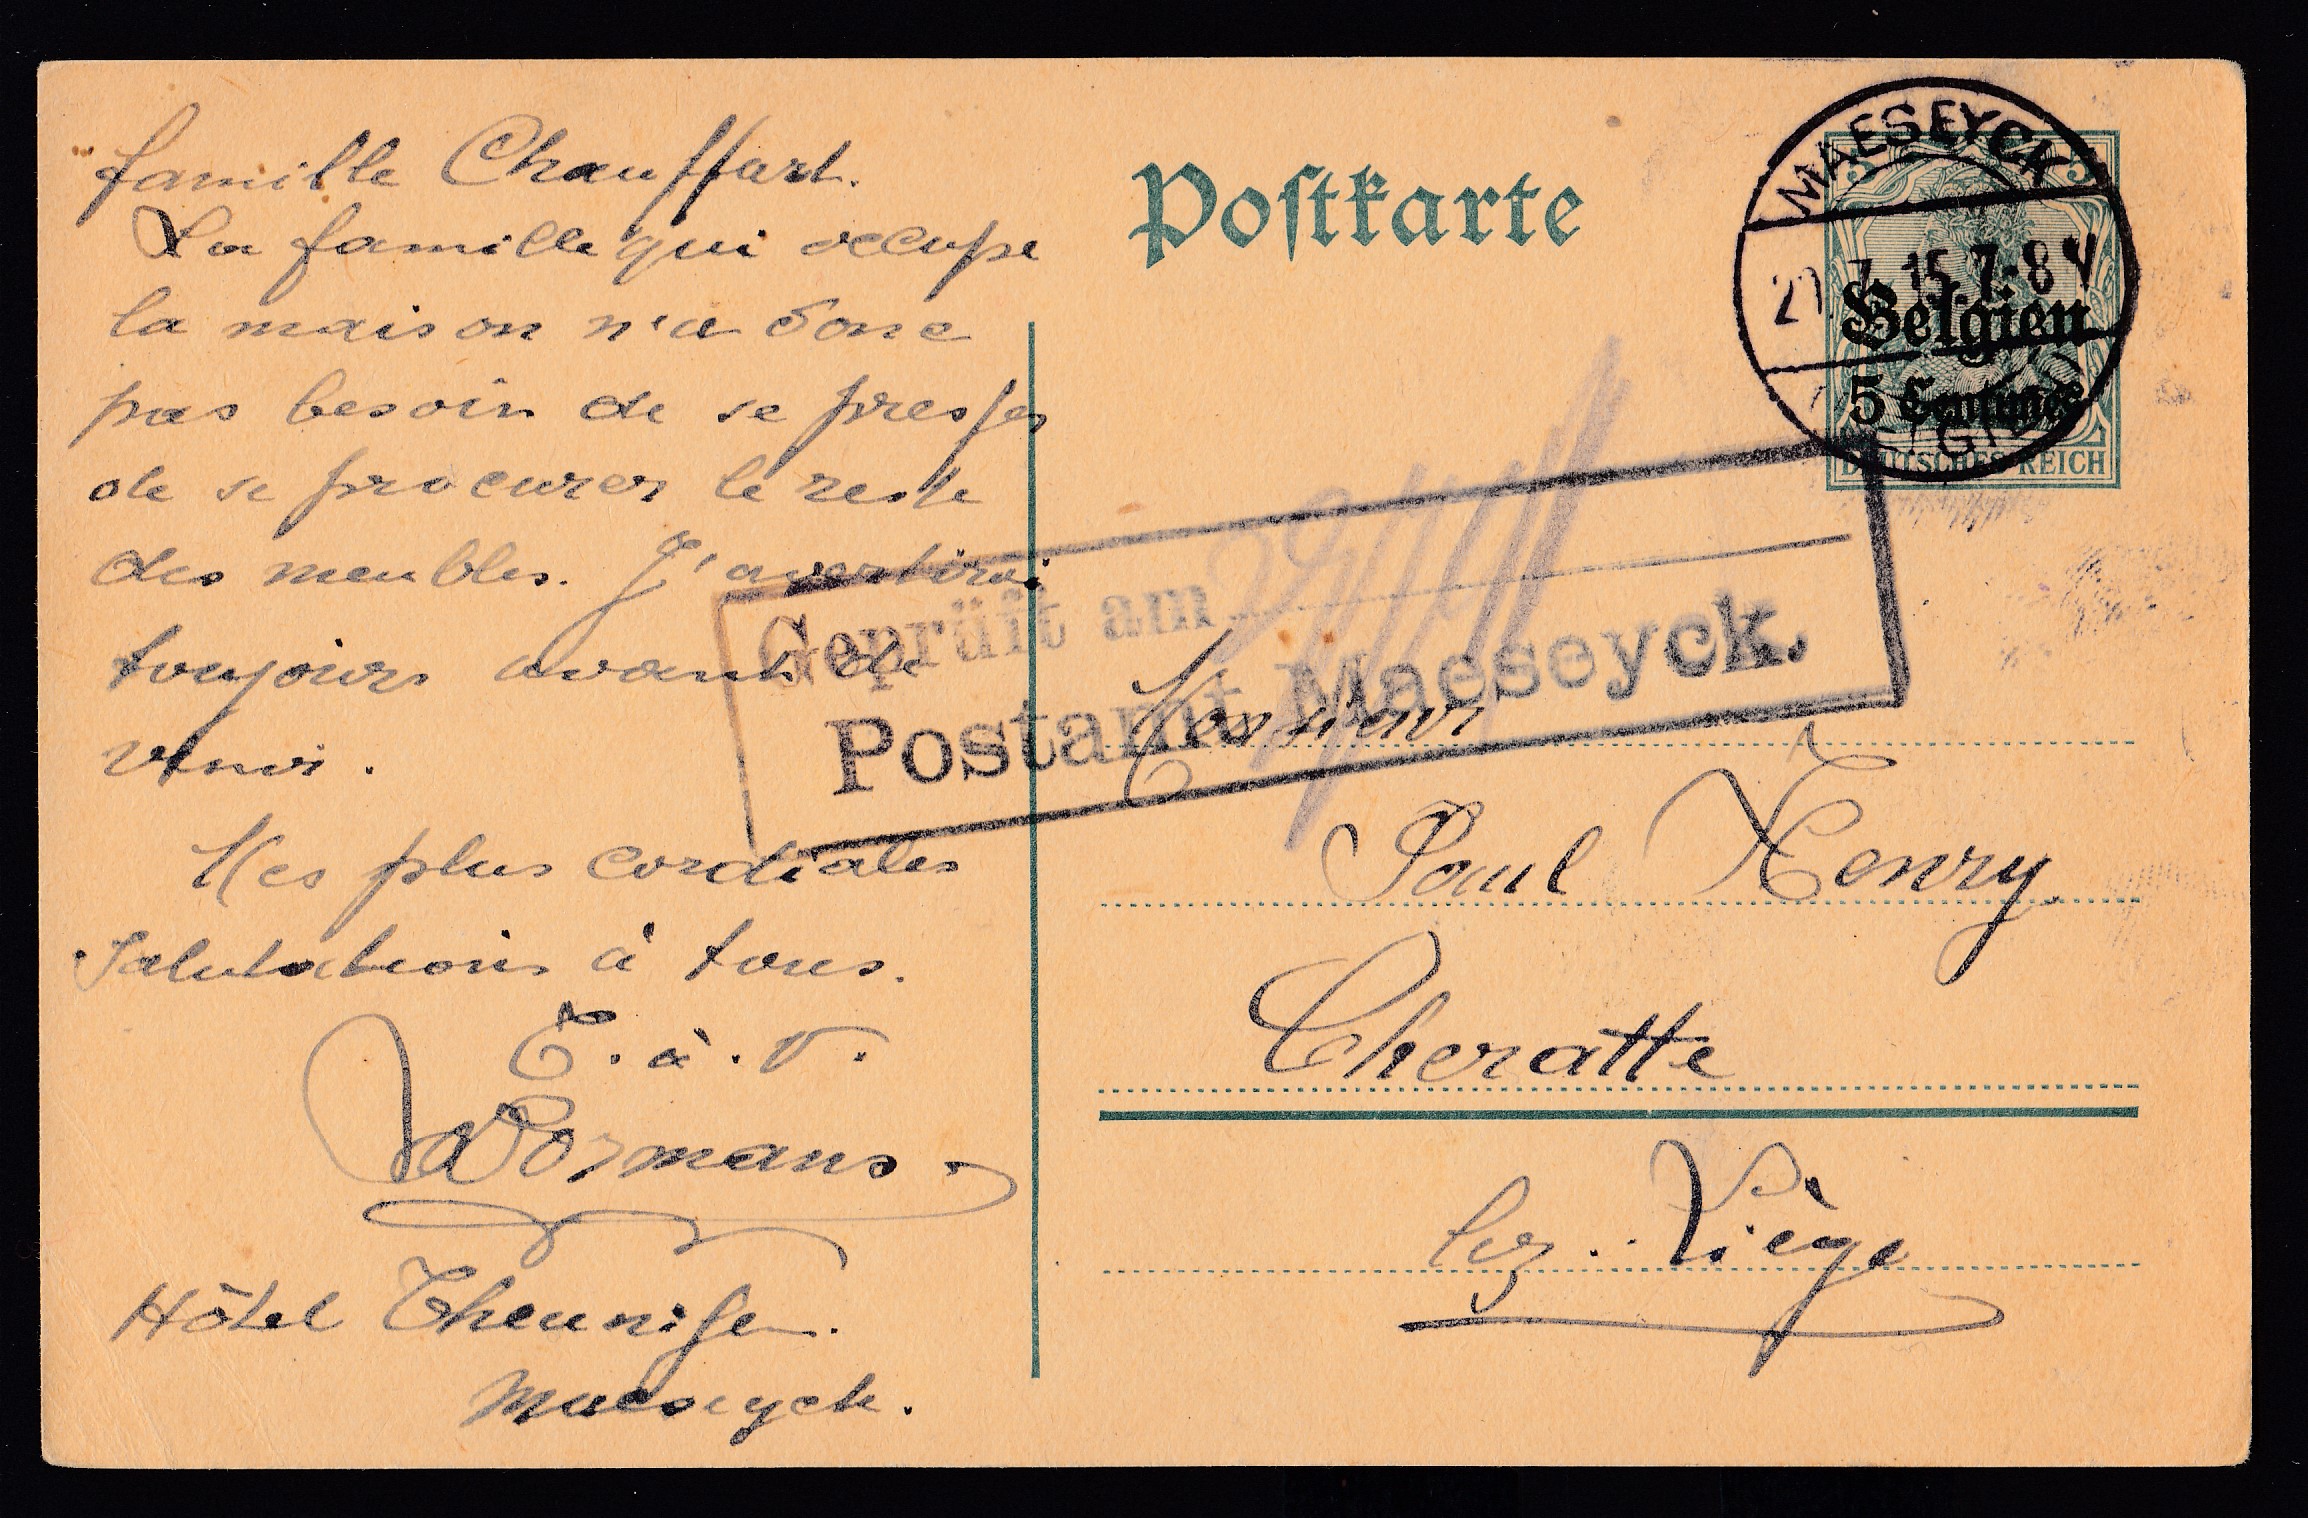 famille Chauffart.
La famille qui occupe
la maison n'a donc
pas besoin de se presser
de se procurer le reste
des meubles. J'avertirai
toujours avant de
venir.
Mes plus cordiales
Salutations à tous.
T. à. V.
Wormans
Hôtel Theunissen.
Maeseyck.
Postkarte
MAESEYCK
7. 15. 7-8 V
Belgien
5 Centimes
DEUTSCHES REICH
Geprüft am
Postamt Maeseyck.
Monsieur
Paul Henry
Cheratte
lez. Liège